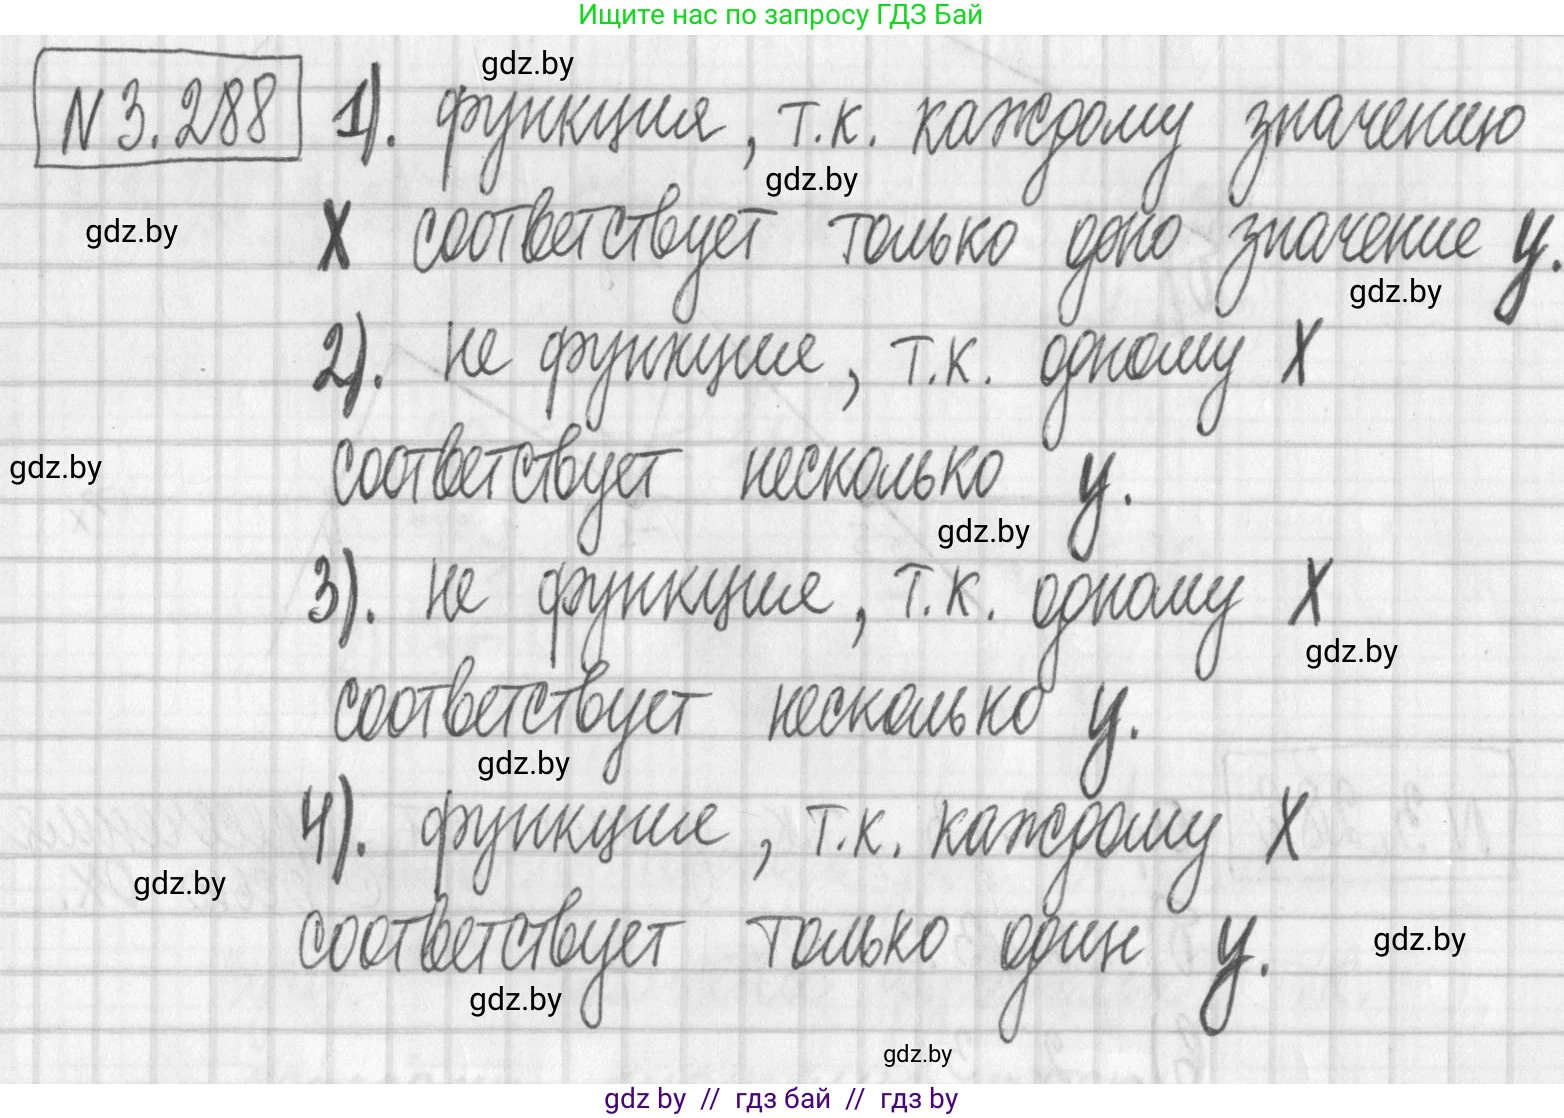 Ищите нас по запросу ГДЗ Бай
gdz.by
N 3.288 1). функция, т.к. каждому значению
gdz.by
gdz.by
x соответствует только одно значение y.
gdz.by
2). не функция, т.к. одному x
соответствует несколько y.
gdz.by
gdz.by
3). не функция, т.к. одному x
gdz.by
соответствует несколько y.
gdz.by
4). функция, т.к. каждому x
gdz.by
соответствует только один y.
gdz.by
gdz.by
gdz.by
gdz by // гдз бай // гдз by